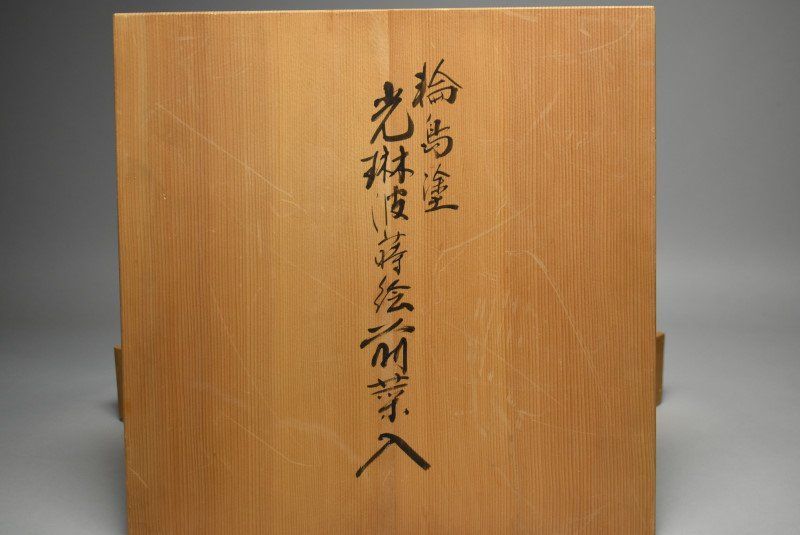 輪島塗
光琳波蒔絵前菜入